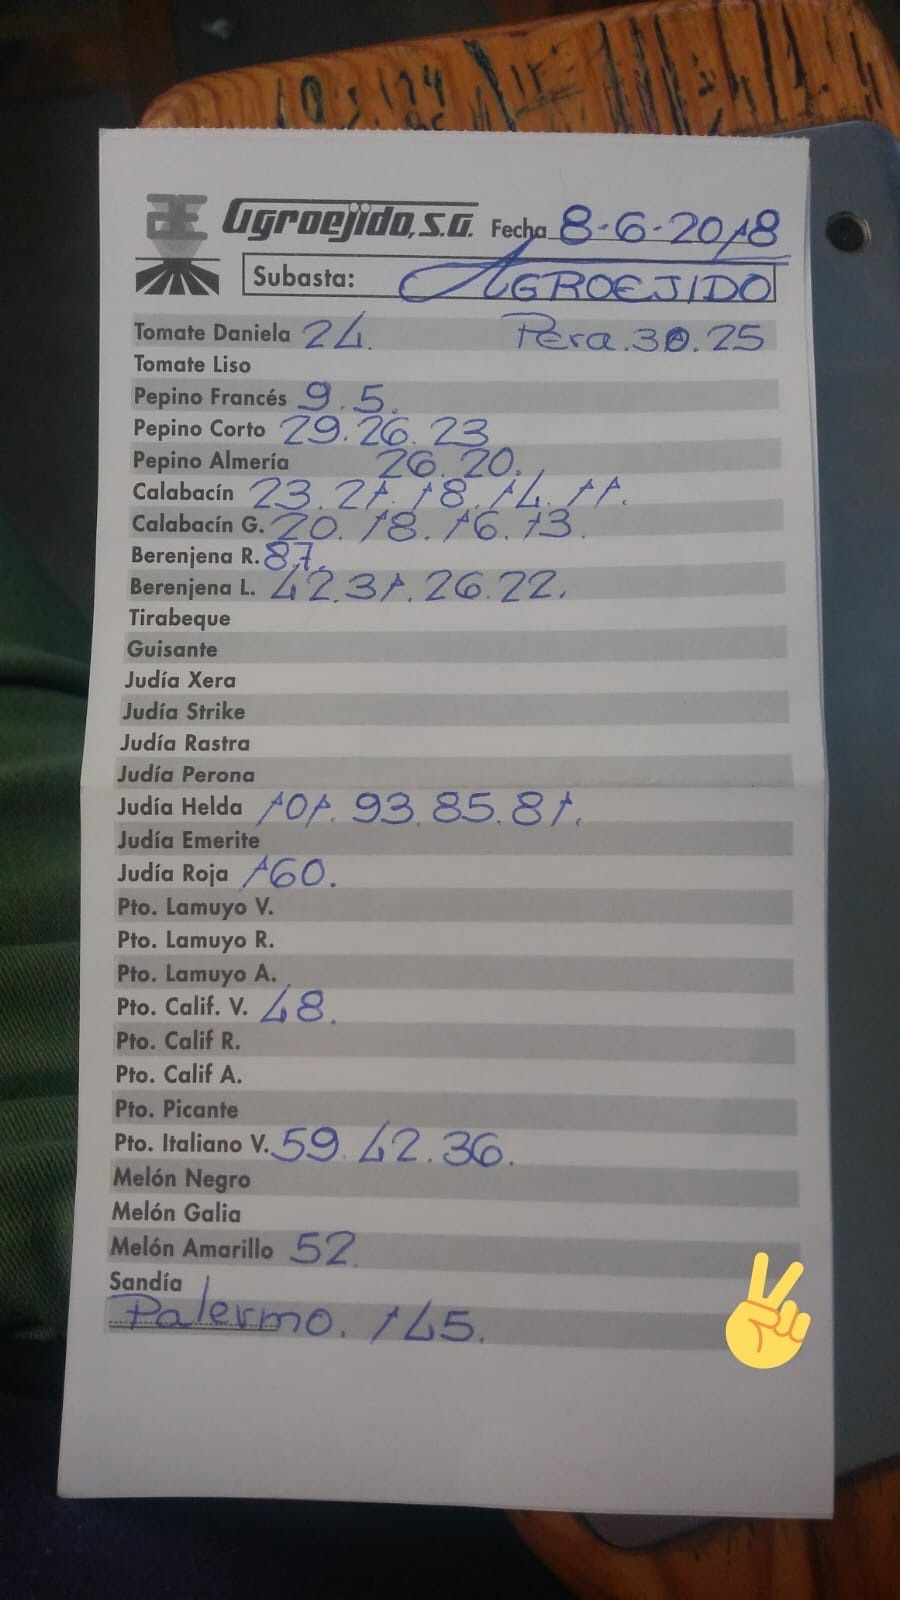 Agroejido, S.A. Fecha 8-6-2018
Subasta: AGROEJIDO
Tomate Daniela 24. Pera.30.25
Tomate Liso
Pepino Francés 9.5.
Pepino Corto 29.26.23
Pepino Almería 26.20.
Calabacín 23.21.18.14.11.
Calabacín G. 20.18.16.13.
Berenjena R. 87.
Berenjena L. 42.31.26.22.
Tirabeque
Guisante
Judía Xera
Judía Strike
Judía Rastra
Judía Perona
Judía Helda 101.93.85.81.
Judía Emerite
Judía Roja 160.
Pto. Lamuyo V.
Pto. Lamuyo R.
Pto. Lamuyo A.
Pto. Calif. V. 48.
Pto. Calif R.
Pto. Calif A.
Pto. Picante
Pto. Italiano V. 59.42.36.
Melón Negro
Melón Galia
Melón Amarillo 52.
Sandía
Palermo. 145.